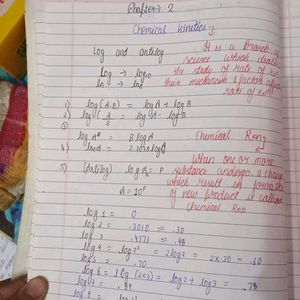 Chapter - 2
Chemical Kinetics
Log and antilog
It is a Branch of
science which deals
the study of rate of Rxn
their mechanism & factors affect
rate of Rxn
log → log10
1) log (A.B) = log A + log B
2) log (A/B) = log A - log B
3)
log A^B = B log A
4) lnA = 2.303 × log
Chemical Rxn
When one or more
substance undergo a change
which result in formation
of new product is called
chemical Rxn
5) (Antilog) log A = P
A = 10^P
log 1 = 0
log 2 = .3010 ≈ .30
log 3 = .4771 ≈ .48
log 4 = log 2² = 2 log 2 = 2x.30 = .60
log 5 = .70
log 6 = log (2x3) = log 2 + log 3 = .78
log 7 = .84